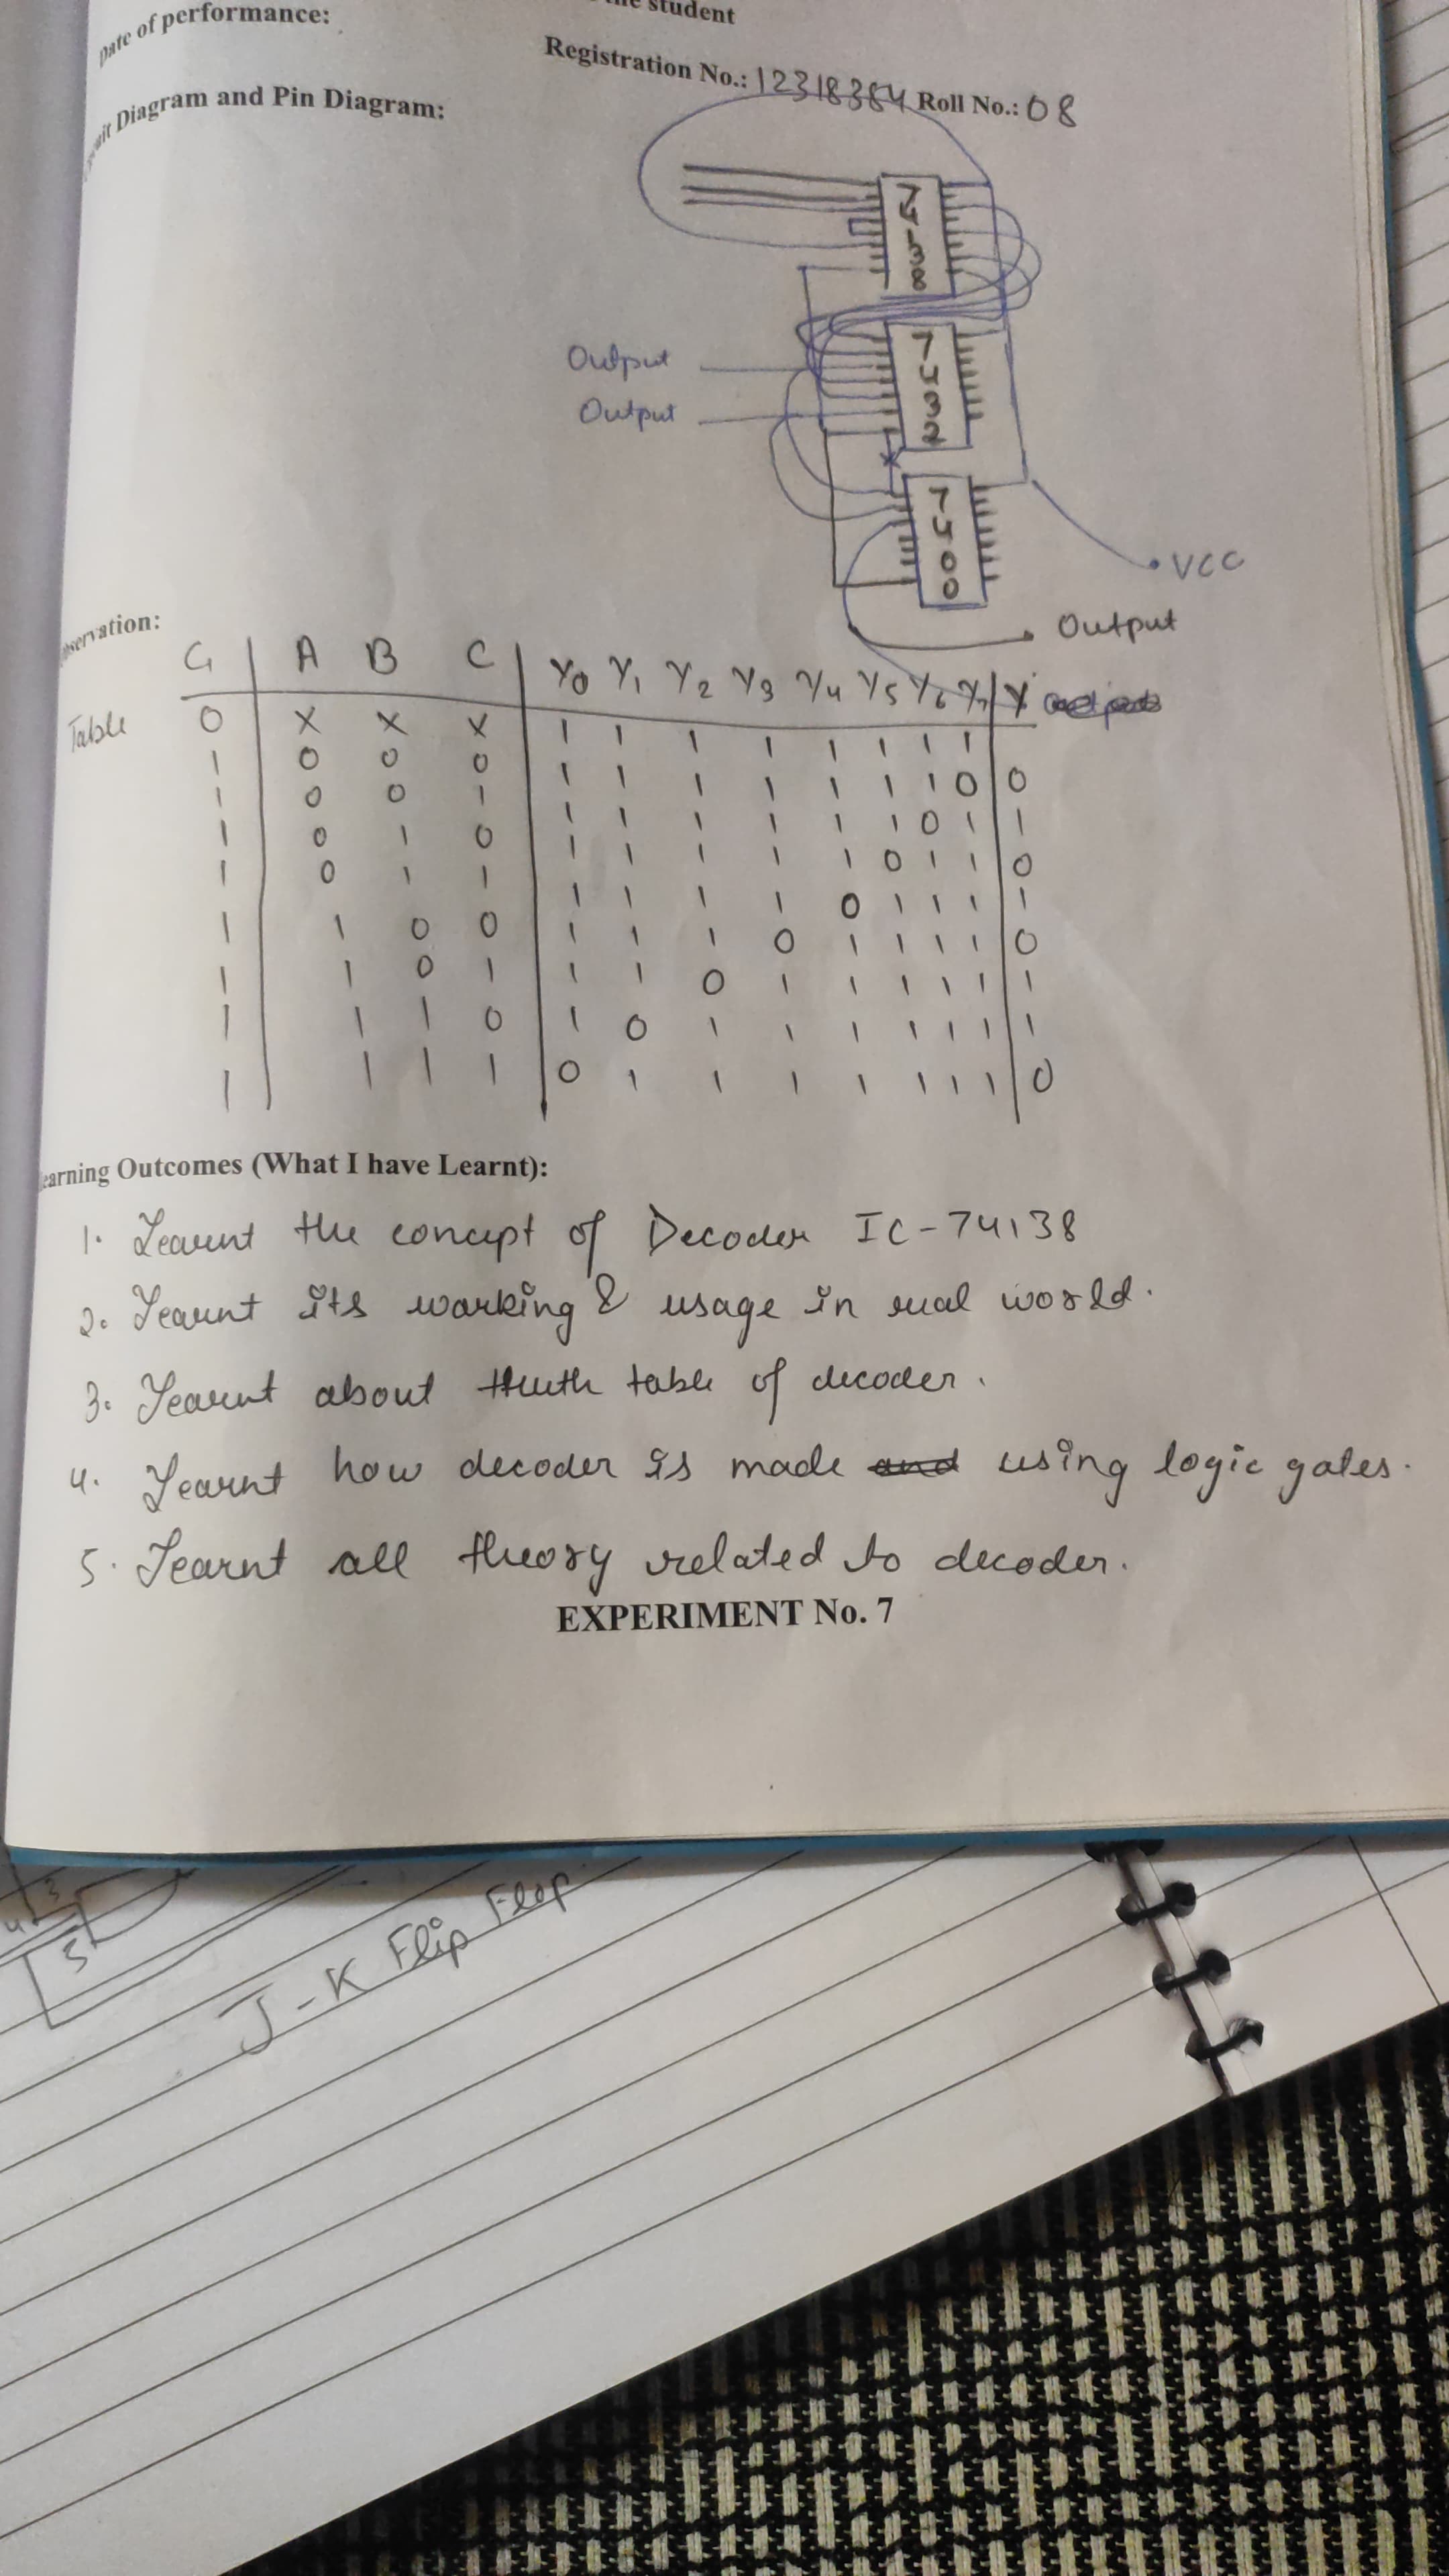 the student
Date of performance:
Registration No.: 12318384 Roll No.: 08
Diagram and Pin Diagram:
74138
Output
7432
Output
7400
VCC
Output
Observation:
G A B C Y0 Y1 Y2 Y3 Y4 Y5 Y6 Y7 Y
Table 0 X X X 1 1 1 1 1 1 1 1
1 0 0 0 1 1 1 1 1 1 1 0 0
1 0 0 1 1 1 1 1 1 1 0 1 1
1 0 1 0 1 1 1 1 1 0 1 1 0
1 0 1 1 1 1 1 1 0 1 1 1 1
1 1 0 0 1 1 1 0 1 1 1 1 0
1 1 0 1 1 1 0 1 1 1 1 1 1
1 1 1 0 1 0 1 1 1 1 1 1 1
1 1 1 1 0 1 1 1 1 1 1 1 0
earning Outcomes (What I have Learnt):
1. Learnt the concept of Decoder IC-74138
2. Learnt its working & usage in real world.
3. Learnt about truth table of decoder.
4. Learnt how decoder is made and using logic gates.
5. Learnt all theory related to decoder.
EXPERIMENT No. 7
J-K Flip Flop